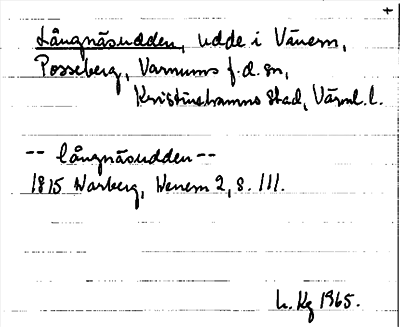 +
Långnäsudden, udde i Vänern,
Posseberg, Varnums f.d. sn,
Kristinehamns stad, Värml. l.
-- långnäsudden --
1815 Warberg, Wenern 2, s. 111.
L. Kg 1965.